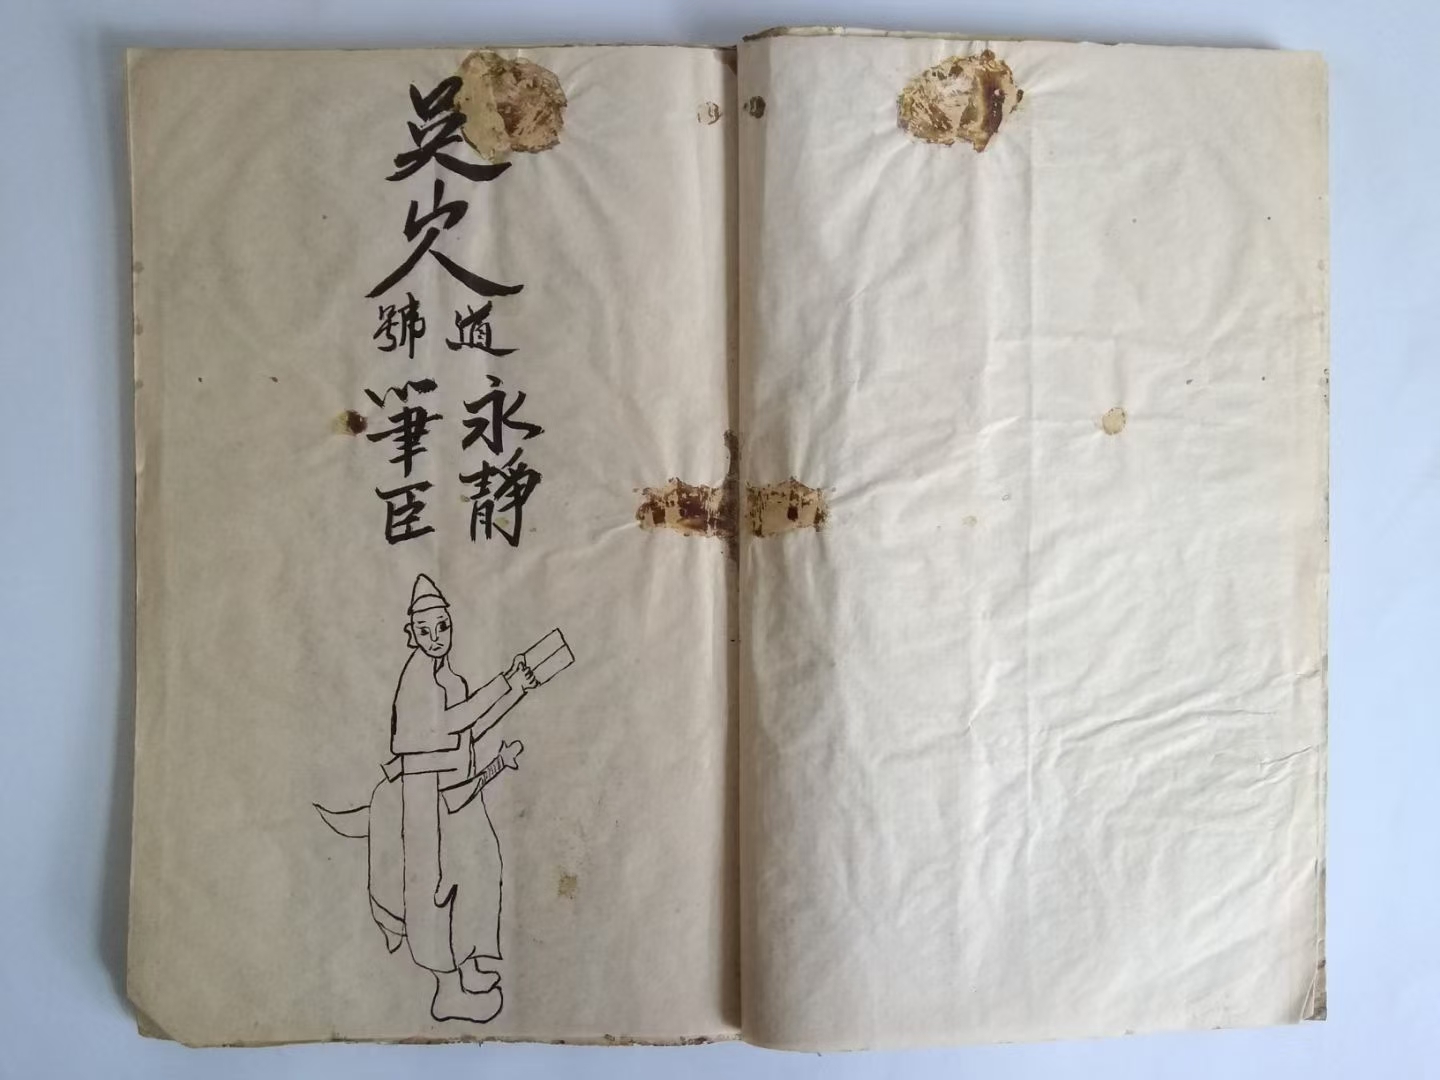 吳
道號
永靜
筆臣